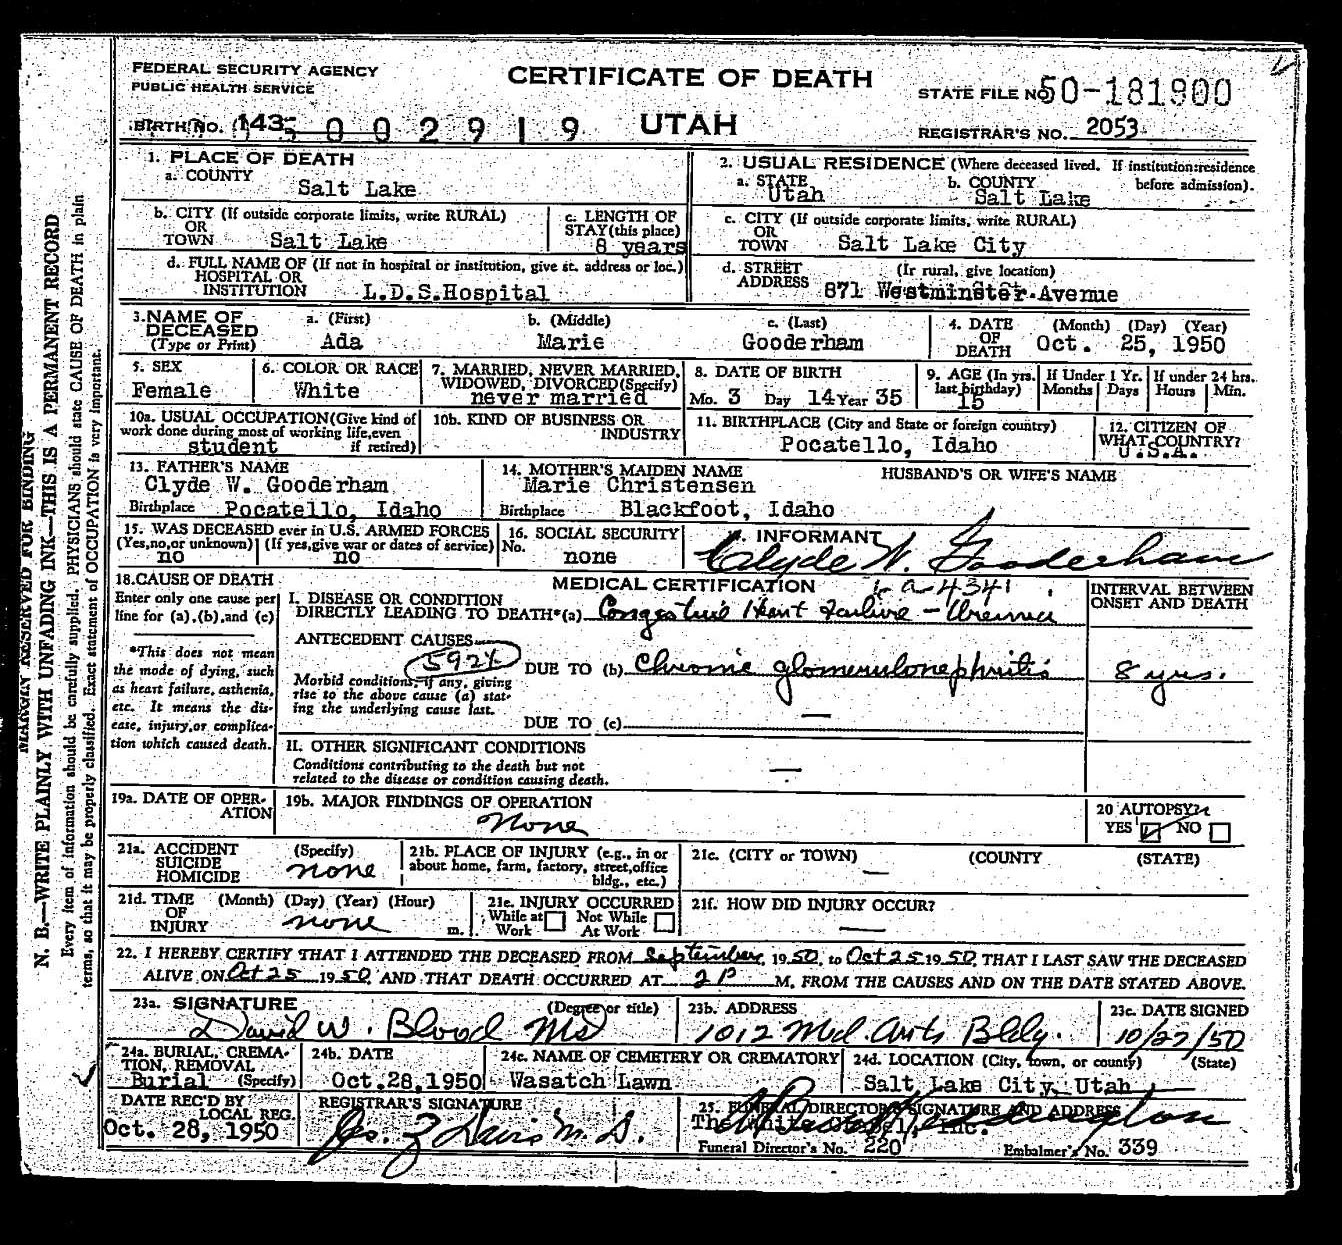 CERTIFICATE OF DEATH
UTAH
FEDERAL SECURITY AGENCY
PUBLIC HEALTH SERVICE
STATE FILE NO. 50-181900
BIRTH NO. 143 002919
REGISTRAR'S NO. 2053
MARGIN RESERVED FOR BINDING
N. B.—WRITE PLAINLY WITH UNFADING INK—THIS IS A PERMANENT RECORD
Every item of information should be carefully supplied. PHYSICIANS should state CAUSE OF DEATH in plain
terms, so that it may be properly classified. Exact statement of OCCUPATION is very important.
1. PLACE OF DEATH
a. COUNTY
Salt Lake
2. USUAL RESIDENCE (Where deceased lived. If institution:residence
before admission).
a. STATE Utah
b. COUNTY Salt Lake
b. CITY (If outside corporate limits, write RURAL)
OR
TOWN Salt Lake
c. LENGTH OF
STAY(this place)
8 years
c. CITY (If outside corporate limits, write RURAL)
OR
TOWN Salt Lake City
d. FULL NAME OF (If not in hospital or institution, give st. address or loc.)
HOSPITAL OR
INSTITUTION L.D.S.Hospital
d. STREET (Ir rural, give location)
ADDRESS 871 Westminster Avenue
3.NAME OF
DECEASED
(Type or Print)
a. (First)
Ada
b. (Middle)
Marie
c. (Last)
Gooderham
4. DATE
OF
DEATH
(Month) (Day) (Year)
Oct. 25, 1950
5. SEX
Female
6. COLOR OR RACE
White
7. MARRIED, NEVER MARRIED,
WIDOWED, DIVORCED(Specify)
never married
8. DATE OF BIRTH
Mo. 3 Day 14 Year 35
9. AGE (In yrs.
last birthday)
15
If Under 1 Yr.
Months Days
If under 24 hrs.
Hours Min.
10a. USUAL OCCUPATION(Give kind of
work done during most of working life,even
if retired)
student
10b. KIND OF BUSINESS OR
INDUSTRY
11. BIRTHPLACE (City and State or foreign country)
Pocatello, Idaho
12. CITIZEN OF
WHAT COUNTRY?
U.S.A.
13. FATHER'S NAME
Clyde W. Gooderham
Birthplace Pocatello, Idaho
14. MOTHER'S MAIDEN NAME
Marie Christensen
Birthplace Blackfoot, Idaho
HUSBAND'S OR WIFE'S NAME
15. WAS DECEASED ever in U.S. ARMED FORCES
(Yes,no,or unknown) (If yes,give war or dates of service)
no no
16. SOCIAL SECURITY
No. none
INFORMANT
Clyde W. Gooderham
18.CAUSE OF DEATH
Enter only one cause per
line for (a).(b).and (c)
*This does not mean
the mode of dying, such
as heart failure, asthenia,
etc. It means the dis-
ease, injury,or complica-
tion which caused death.
MEDICAL CERTIFICATION
a-4341
I. DISEASE OR CONDITION
DIRECTLY LEADING TO DEATH*(a) Congestive Heart Failure - Uremia
ANTECEDENT CAUSES
592X
DUE TO (b) Chronic glomerulonephritis
Morbid conditions, if any, giving
rise to the above cause (a) stat-
ing the underlying cause last.
DUE TO (c) —
INTERVAL BETWEEN
ONSET AND DEATH
8 yrs.
II. OTHER SIGNIFICANT CONDITIONS
Conditions contributing to the death but not
related to the disease or condition causing death.
—
19a. DATE OF OPER-
ATION
19b. MAJOR FINDINGS OF OPERATION
None
20 AUTOPSY?
YES NO
21a. ACCIDENT
SUICIDE
HOMICIDE
(Specify)
none
21b. PLACE OF INJURY (e.g., in or
about home, farm, factory, street,office
bldg., etc.)
21c. (CITY or TOWN) (COUNTY) (STATE)
—
21d. TIME
OF
INJURY
(Month) (Day) (Year) (Hour)
none m.
21e. INJURY OCCURRED
While at
Work
Not While
At Work
21f. HOW DID INJURY OCCUR?
—
22. I HEREBY CERTIFY THAT I ATTENDED THE DECEASED FROM September, 1950, to Oct 25 1950, THAT I LAST SAW THE DECEASED
ALIVE ON Oct 25 1950, AND THAT DEATH OCCURRED AT 2 P M. FROM THE CAUSES AND ON THE DATE STATED ABOVE.
23a. SIGNATURE (Degree or title)
David W. Blood MD
23b. ADDRESS
1012 Med. Arts Bldg.
23c. DATE SIGNED
10/27/50
24a. BURIAL, CREMA-
TION, REMOVAL
Burial (Specify)
24b. DATE
Oct.28,1950
24c. NAME OF CEMETERY OR CREMATORY
Wasatch Lawn
24d. LOCATION (City, town, or county) (State)
Salt Lake City, Utah
DATE REC'D BY
LOCAL REG.
Oct. 28, 1950
REGISTRAR'S SIGNATURE
Geo. Z Davis M. D.
25. FUNERAL DIRECTOR'S SIGNATURE AND ADDRESS
Funeral Director's No. 220
Embalmer's No. 339